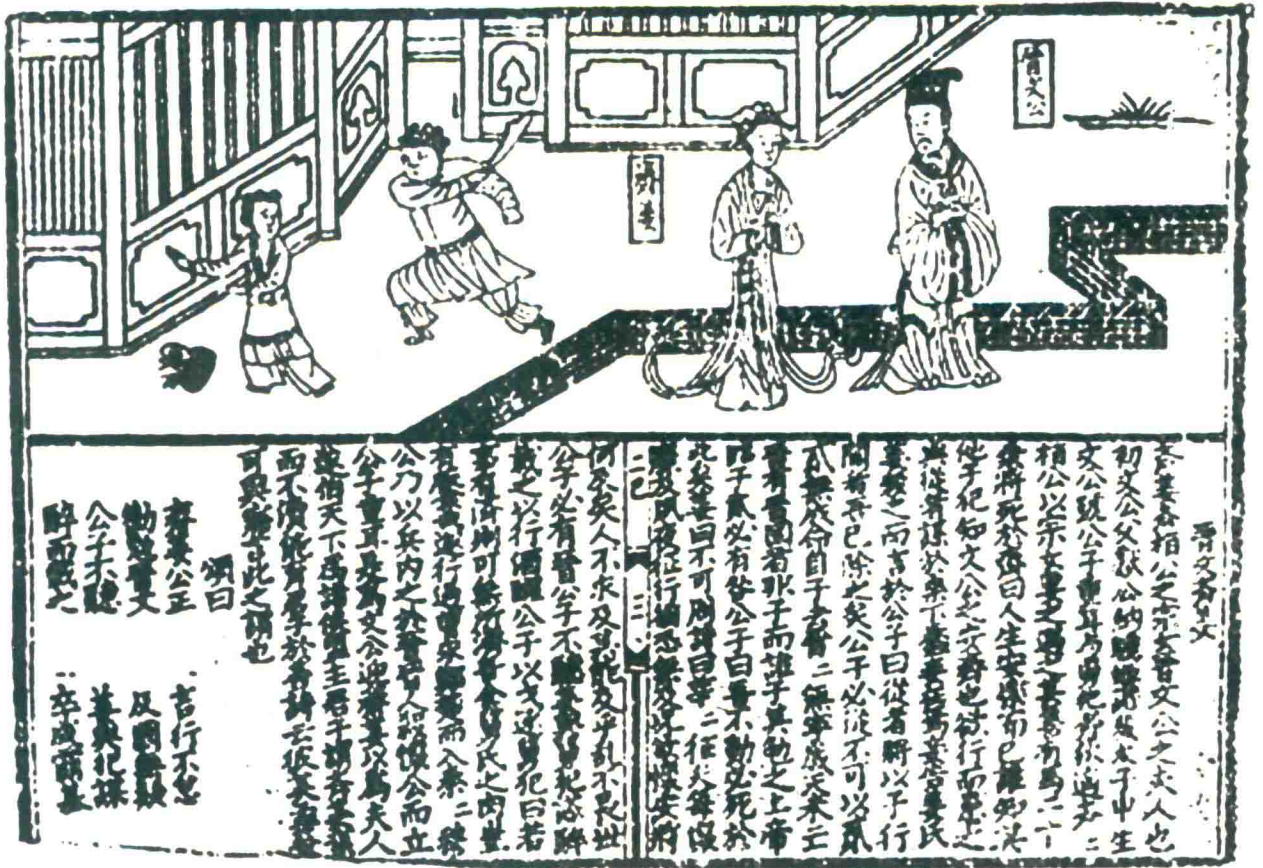 晉文公
齊姜
晉文齊姜
齊姜齊桓公之宗女晉文公之夫人也
初文公父獻公納驪姬譖殺太子申生
文公號公子重耳與舅犯奔狄適齊二
桓公以宗女妻之遇之甚善有馬二十
乘將死於齊曰人生安樂而已誰知其
他子犯知文公之安齊也欲行而患之
與從者謀於桑下蠶妾在焉妾告姜氏
姜殺之而言於公子曰從者將以子行
聞者吾已除之矣公子必從不可以貳
貳無成命自子去晉二無寧歲天未亡
晉有晉國者非子而誰子其勉之上帝
臨子貳必有咎公子曰吾不動必死於
此矣姜曰不可周詩曰莘二征夫每懷
靡及夙夜征行猶恐無及況欲懷安將
二己
三
何及矣人不求及其能及乎亂不長世
公子必有晉公子不聽姜與舅犯謀醉
載之以行酒醒公子以戈逐舅犯曰若
事有濟則可無所濟吾食舅氏之肉豈
有饜哉遂行過曹宋鄭楚而入秦二穆
公乃以兵內之於晉晉人殺懷公而立
公子重耳是為文公迎齊姜以為夫人
遂伯天下為諸侯盟主君子謂齊姜潔
而不瀆能育君子於善詩云彼美孟姜
可與寤言此之謂也
頌曰
齊姜公正 言行不怠
勸勉晉文 反國無疑
公子不聽 姜與犯謀
醉而載之 卒成霸基